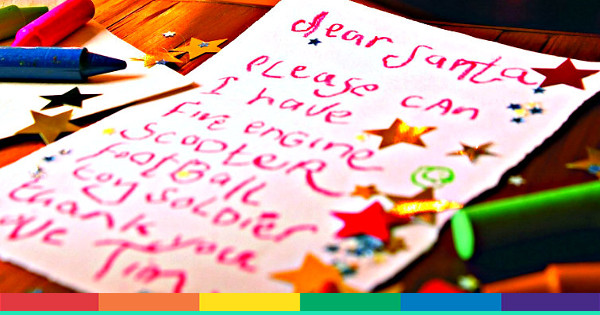 dear Santa
PLease CAn
I have
Fire enGine
ScOOteR
FootBaLL
toy SoLdier
thank you
Tim